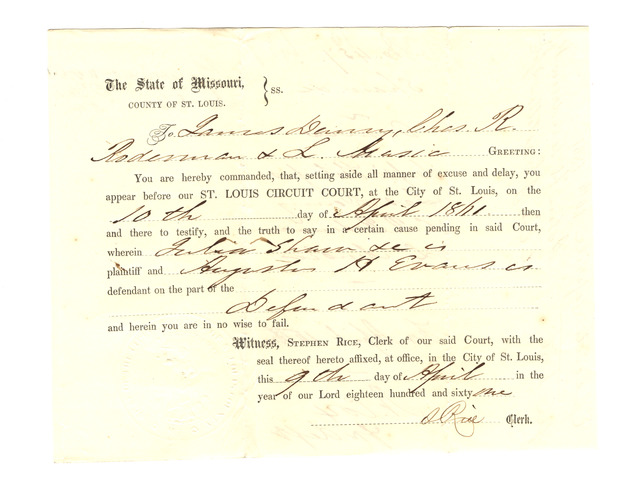 The State of Missouri, } ss.
COUNTY OF ST. LOUIS.
To James Denny, Chas. R.
Roderman & L. Music GREETING:
You are hereby commanded, that, setting aside all manner of excuse and delay, you
appear before our ST. LOUIS CIRCUIT COURT, at the City of St. Louis, on the
10th day of April 1861 then
and there to testify, and the truth to say in a certain cause pending in said Court,
wherein Julia Shaw &c is
plaintiff and Augustus H Evans is
defendant on the part of the
Defendant
and herein you are in no wise to fail.
Witness, STEPHEN RICE, Clerk of our said Court, with the
seal thereof hereto affixed, at office, in the City of St. Louis,
this 9th day of April in the
year of our Lord eighteen hundred and sixty one
S Rice Clerk.